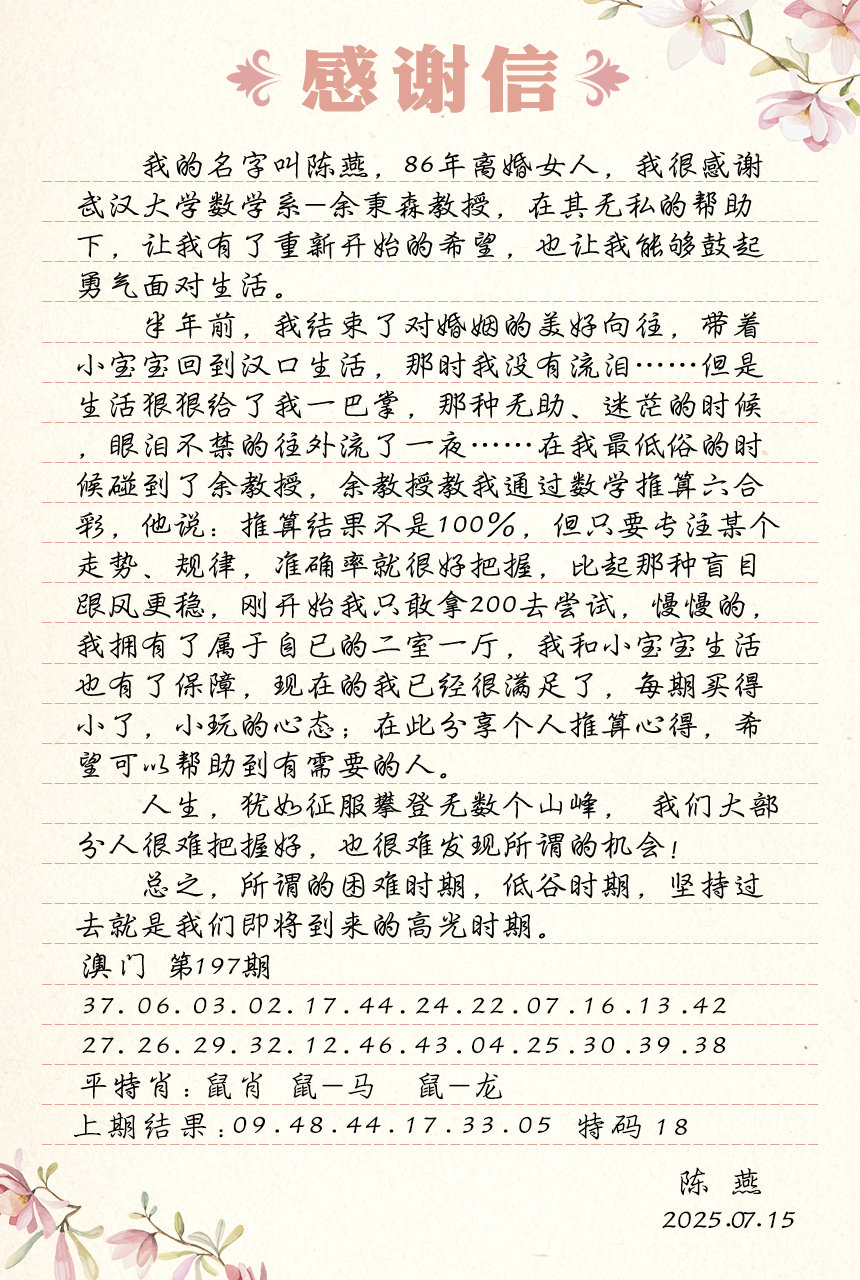 感谢信
我的名字叫陈燕，86年离婚女人，我很感谢
武汉大学数学系—余秉森教授，在其无私的帮助
下，让我有了重新开始的希望，也让我能够鼓起
勇气面对生活。
半年前，我结束了对婚姻的美好向往，带着
小宝宝回到汉口生活，那时我没有流泪……但是
生活狠狠给了我一巴掌，那种无助、迷茫的时候
，眼泪不禁的往外流了一夜……在我最低俗的时
候碰到了余教授，余教授教我通过数学推算六合
彩，他说：推算结果不是100%，但只要专注某个
走势、规律，准确率就很好把握，比起那种盲目
跟风更稳，刚开始我只敢拿200去尝试，慢慢的，
我拥有了属于自已的二室一厅，我和小宝宝生活
也有了保障，现在的我已经很满足了，每期买得
小了，小玩的心态；在此分享个人推算心得，希
望可以帮助到有需要的人。
人生，犹如征服攀登无数个山峰， 我们大部
分人很难把握好，也很难发现所谓的机会！
总之，所谓的困难时期，低谷时期，坚持过
去就是我们即将到来的高光时期。
澳门 第197期
37.06.03.02.17.44.24.22.07.16.13.42
27.26.29.32.12.46.43.04.25.30.39.38
平特肖：鼠肖 鼠—马 鼠—龙
上期结果：09.48.44.17.33.05 特码 18
陈 燕
2025.07.15